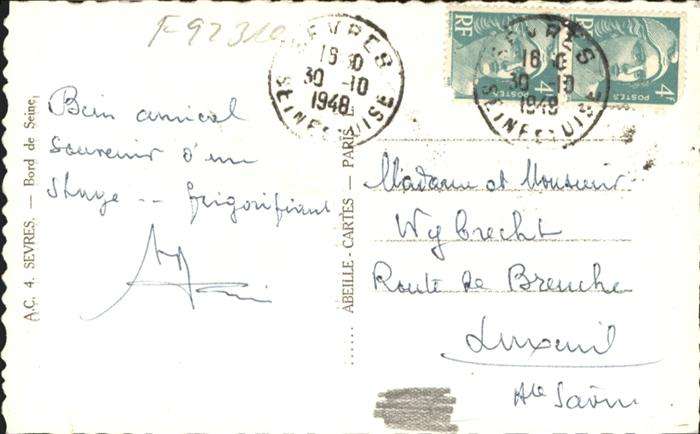 F 9231
SEVRES
18 30
30 -10
1948
SEINE-&-OISE
SEVRES
18 30
30 -10
1948
SEINE-&-OISE
RF
4F
POSTES
RF
4F
POSTES
Bien amical
souvenir d'un
stage -- frigorifiant
Madame et Monsieur
Wybrecht
Route de Breuche
Luxeuil
Hte Saône
A.C. 4. SEVRES. — Bord de Seine.
ABEILLE-CARTES — PARIS